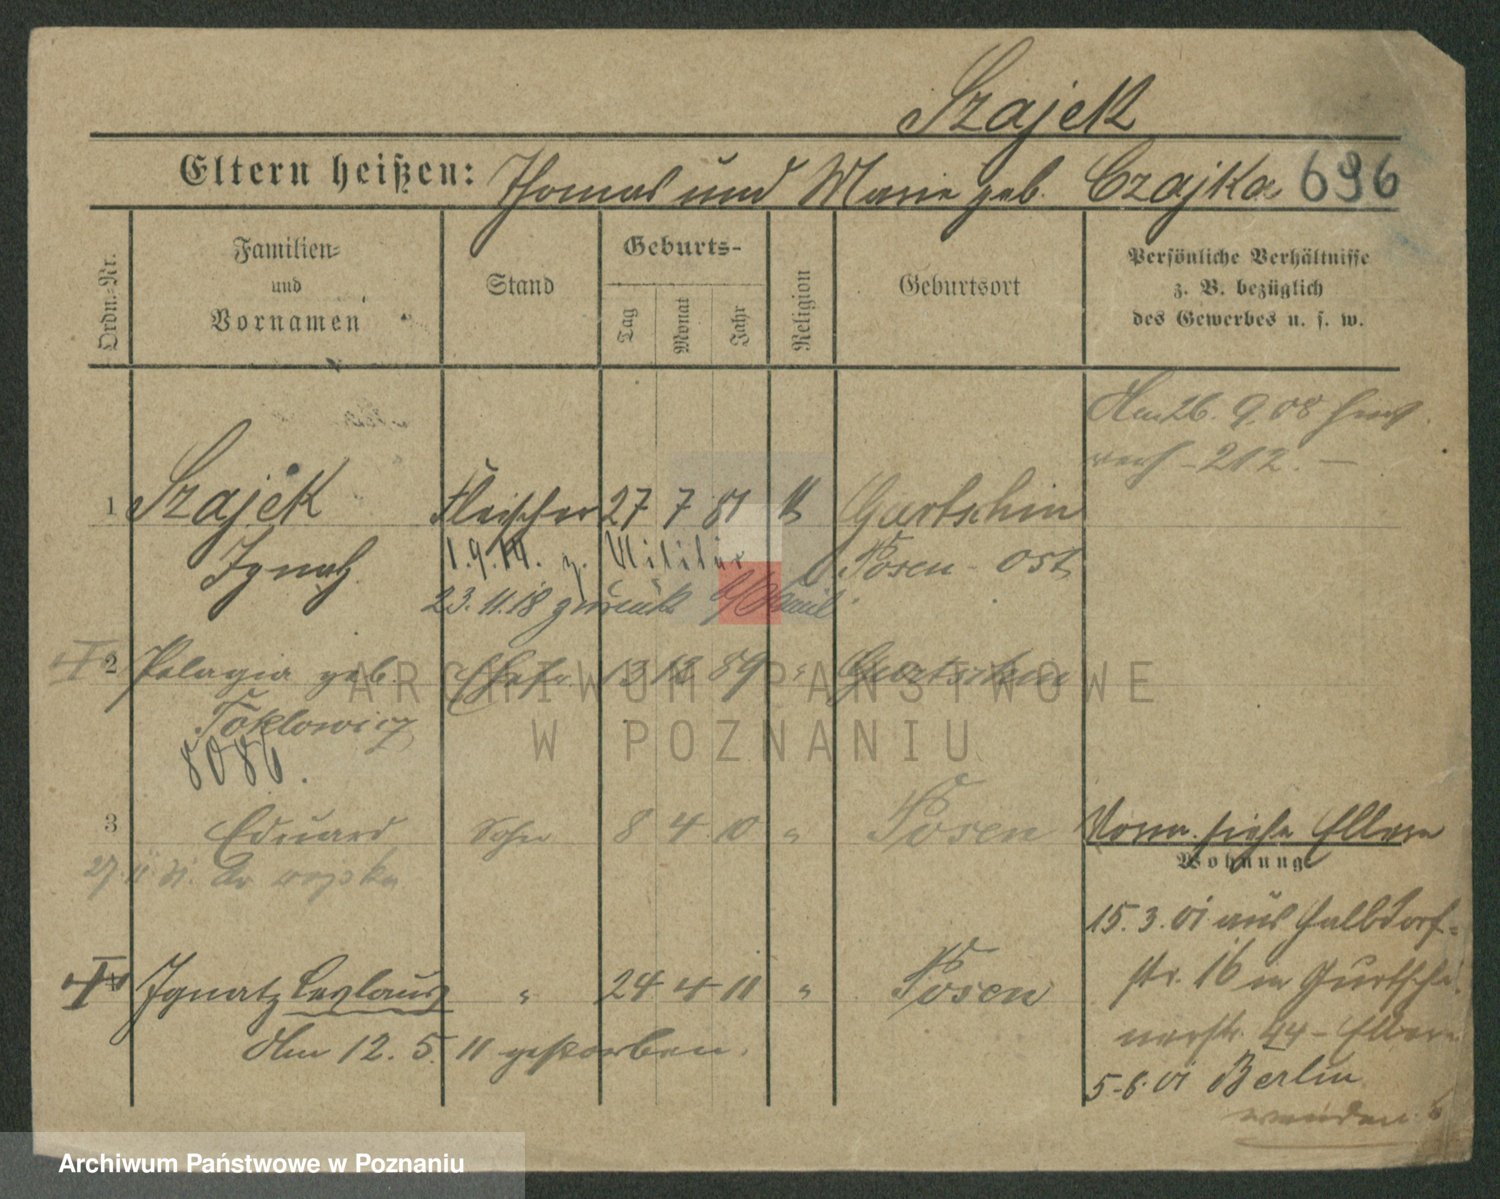 Szajek
Eltern heißen: Thomas und Marie geb. Czajka 696
Ordn.-Nr.
Familien-
und
Vornamen
Stand
Geburts-
Tag
Monat
Jahr
Religion
Geburtsort
Persönliche Verhältnisse
z. B. bezüglich
des Gewerbes u. s. w.
Am 26. 9. 08
212. —
1 Szajek Fleischer 27 7 81 Gurtschin
Ignatz 1.9.14. z. Militär Posen - Ost
23.11.18 zurück
2 Pelagia geb. Ehefr. 13 12 89 " Gurtschin
8086.
3 Eduard Sohn 8 4 10 " Posen
27. 11 31. do wojska
Vorm. siehe Eltern
Wohnung
15. 3. 01 aus Halbdorf-
str. 16 in Gurtschi-
nerstr. 44 - Eltern
5-6. 01 Berlin
wenden
4 Ignatz " 24 4 11 " Posen
Am 12. 5. 11 gestorben.
ARCHIWUM PAŃSTWOWE
W POZNANIU
Archiwum Państwowe w Poznaniu